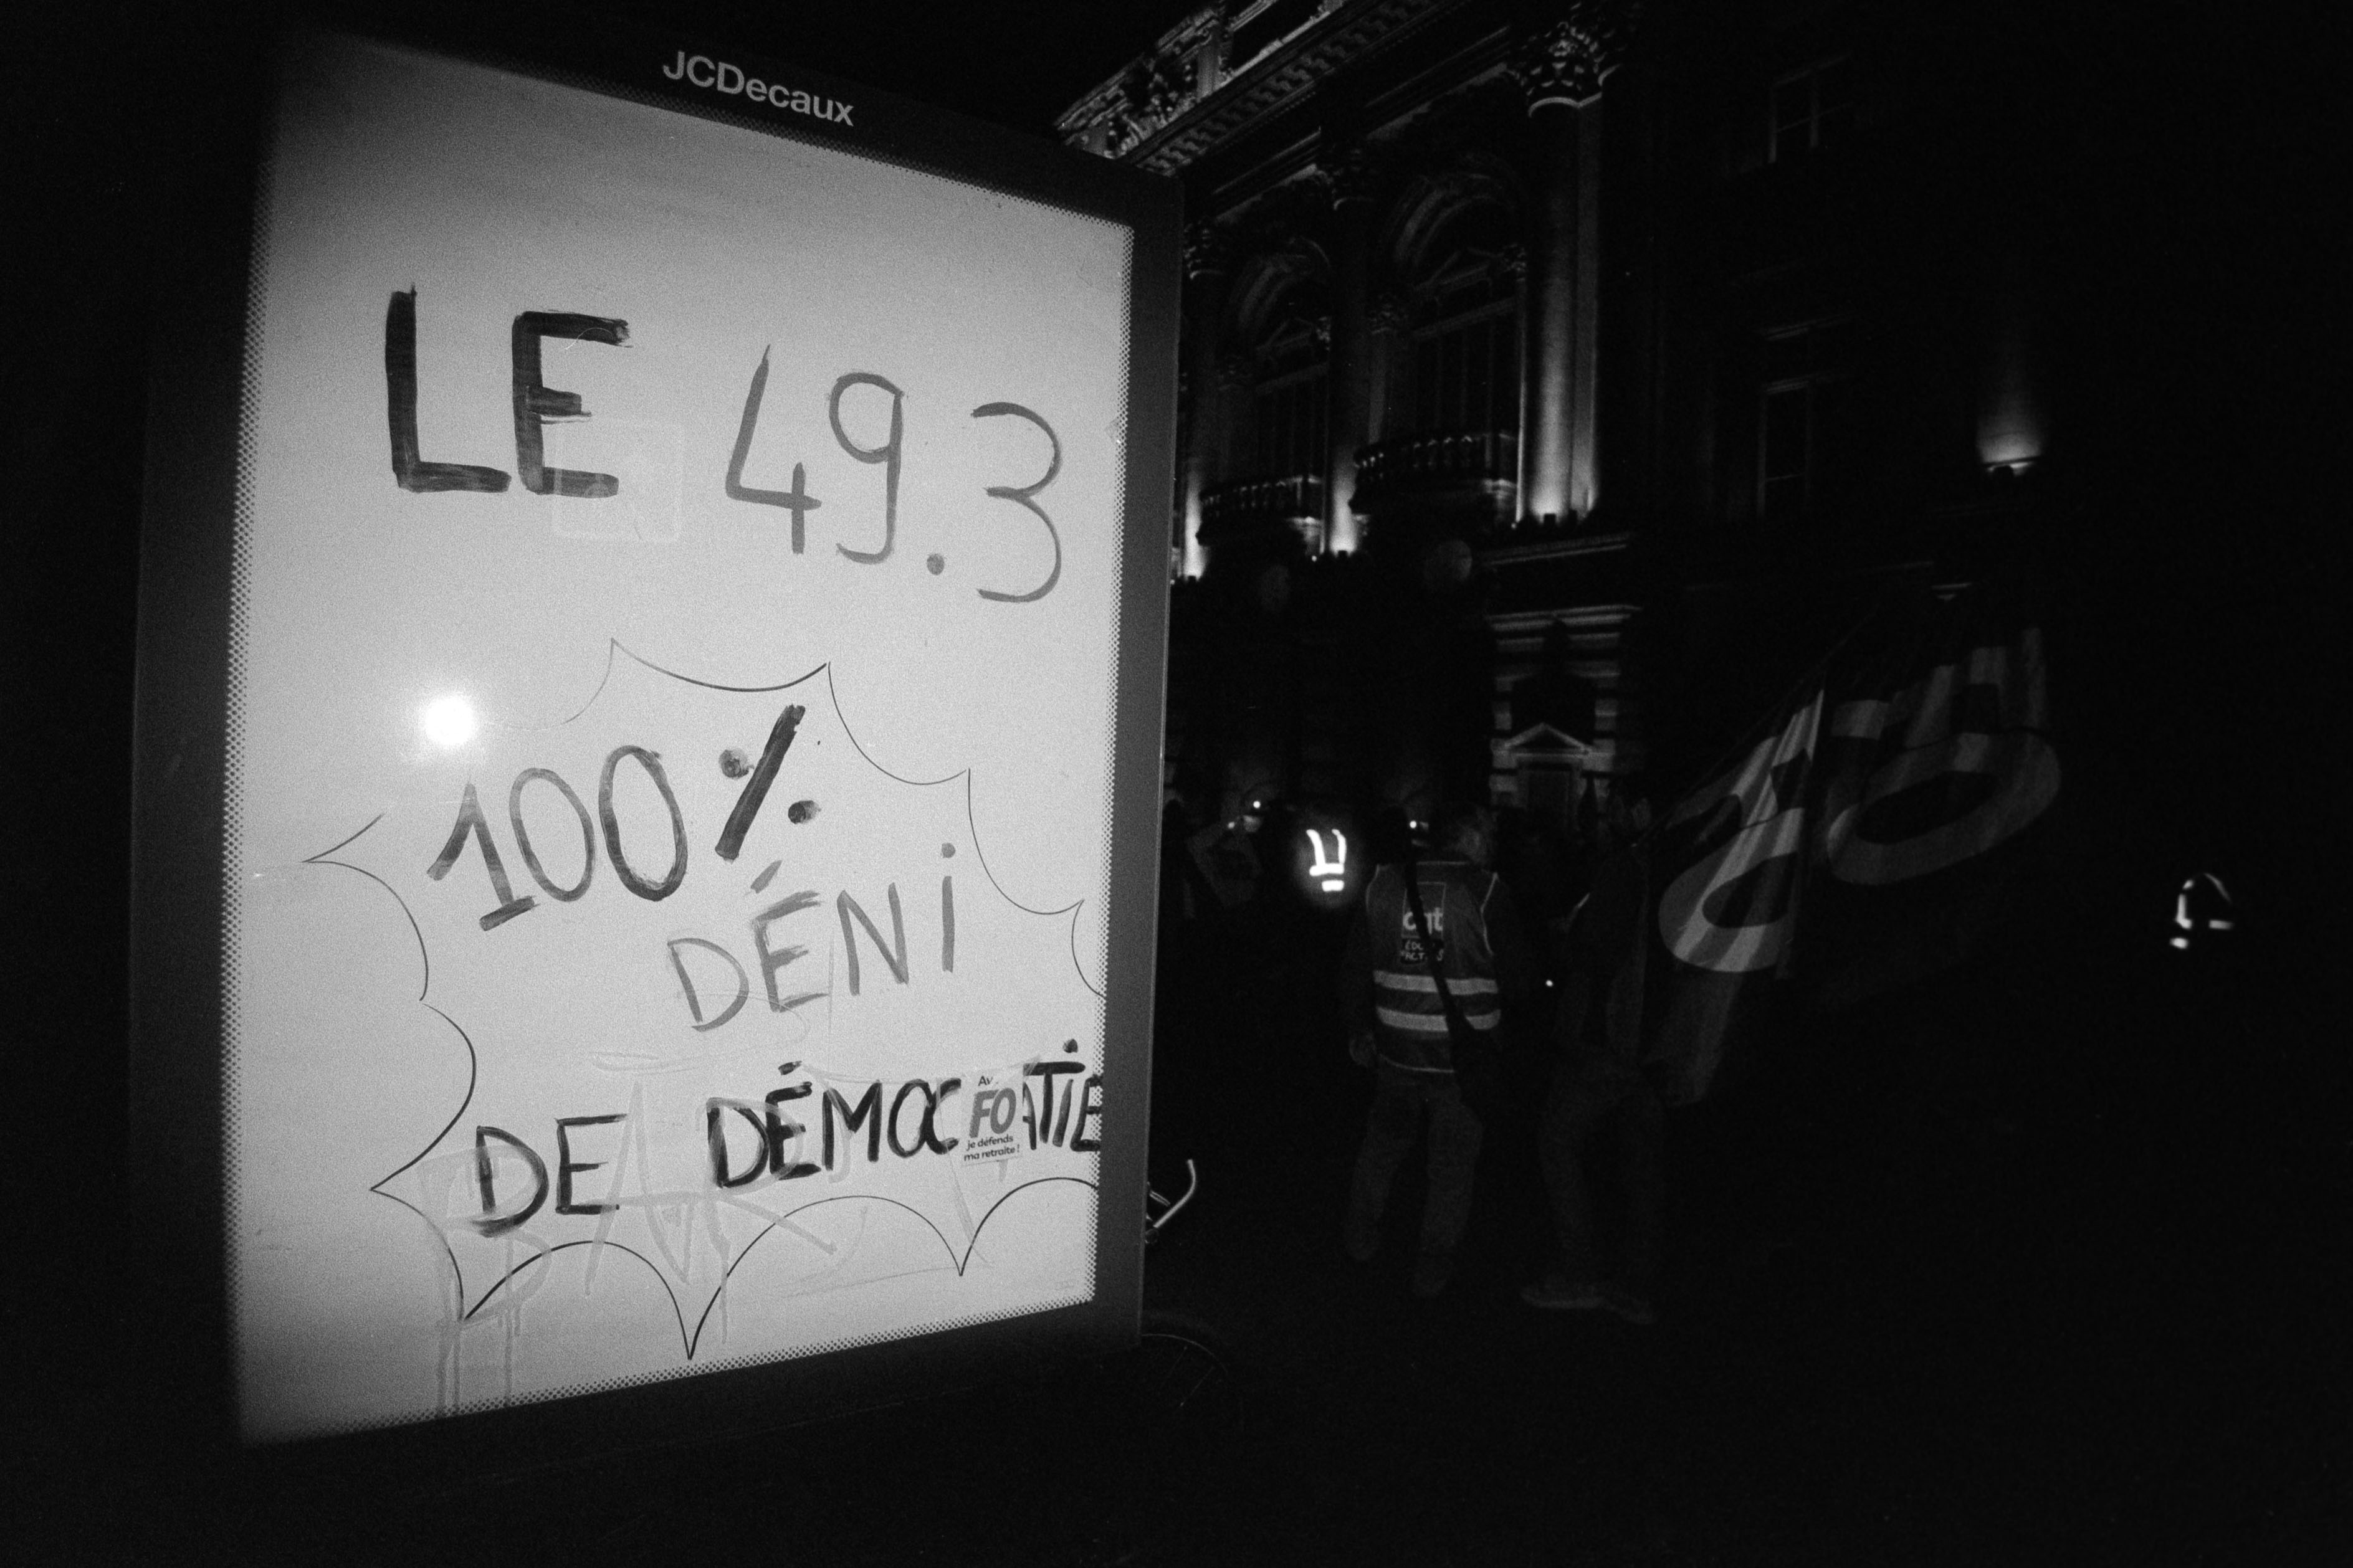 JCDecaux
LE 49.3
100%
DÉNI
DE DÉMOC ATIE
Av
FO
je défends
ma retraite !
cgt